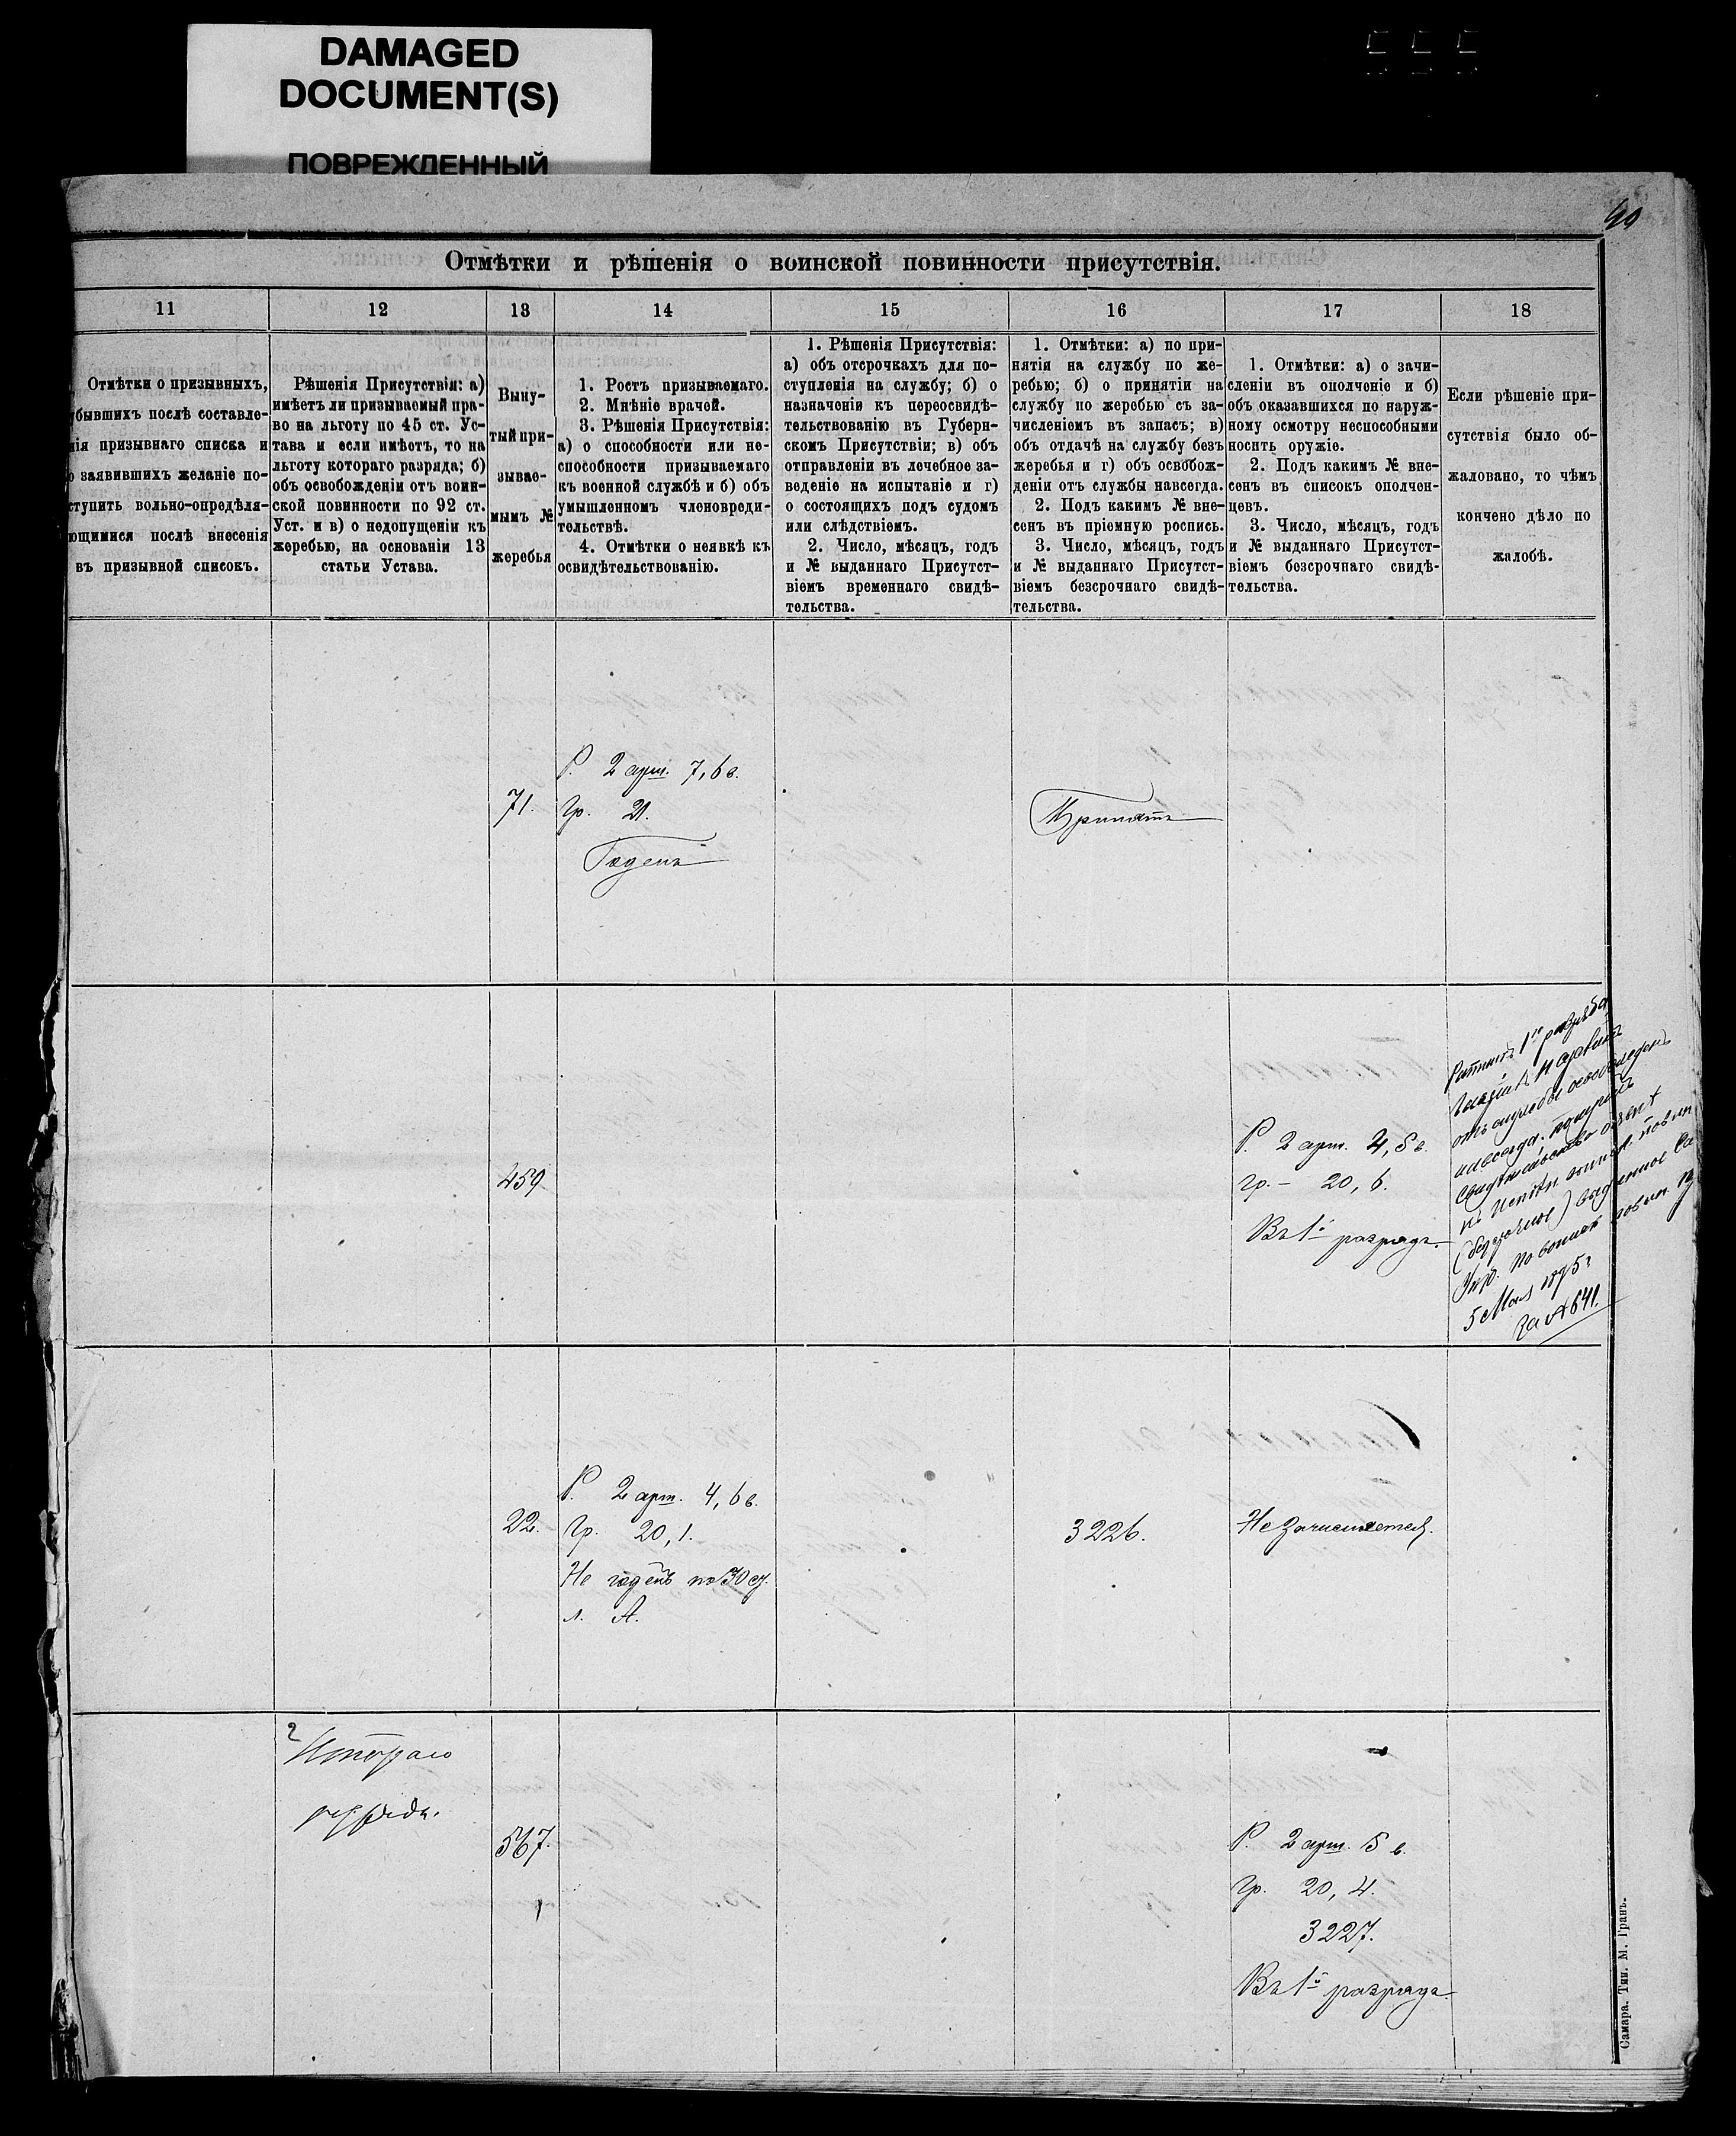 DAMAGED
DOCUMENT(S)
ПОВРЕЖДЕННЫЙ
Отмѣтки и рѣшенія о воинской повинности присутствія.
11
12
13
14
15
16
17
18
Отмѣтки о призывныхъ,
убывшихъ послѣ составле-
нія призывнаго списка и
о заявившихъ желаніе по-
ступить вольно-опредѣля-
ющимися послѣ внесенія
въ призывной список.
Рѣшенія Присутствія: а)
имѣетъ ли призываемый пра-
во на льготу по 45 ст. Ус-
тава и если имѣетъ, то на
льготу котораго разряда; б)
объ освобожденіи отъ воин-
ской повинности по 92 ст.
Уст. и в) о недопущеніи къ
жеребью, на основаніи 13
статьи Устава.
Выну-
тый при-
зывае-
мымъ №
жеребья
1. Ростъ призываемаго.
2. Мнѣніе врачей.
3. Рѣшенія Присутствія:
а) о способности или не-
способности призываемаго
къ военной службѣ и б) объ
умышленномъ членовреди-
тельствѣ.
4. Отмѣтки о неявкѣ къ
освидѣтельствованію.
1. Рѣшенія Присутствія:
а) объ отсрочкахъ для по-
ступленія на службу; б) о
назначеніи къ переосвидѣ-
тельствованію въ Губерн-
скомъ Присутствіи; в) объ
отправленіи въ лечебное за-
веденіе на испытаніе и г)
о состоящихъ подъ судомъ
или слѣдствіемъ.
2. Число, мѣсяцъ, годъ
и № выданнаго Присутст-
віемъ временнаго свидѣ-
тельства.
1. Отмѣтки: а) по при-
нятія на службу по же-
ребью; б) о принятіи на
службу по жеребью съ за-
численіемъ въ запасъ; в)
объ отдачѣ на службу безъ
жеребья и г) объ освобож-
деніи отъ службы навсегда.
2. Подъ какимъ № вне-
сенъ въ пріемную роспись.
3. Число, мѣсяцъ, годъ
и № выданнаго Присутст-
віемъ безсрочнаго свидѣ-
тельства.
1. Отмѣтки: а) о зачи-
сленіи въ ополченіе и б)
объ оказавшихся по наруж-
ному осмотру неспособными
носить оружіе.
2. Подъ какимъ № вне-
сенъ въ списокъ ополчен-
цевъ.
3. Число, мѣсяцъ, годъ
и № выданнаго Присутст-
віемъ безсрочнаго свидѣ-
тельства.
Если рѣшеніе при-
сутствія было об-
жаловано, то чѣмъ
кончено дѣло по
жалобѣ.
71.
Р. 2 арш. 7,6 в.
Гр. 21.
Годенъ
Принятъ
459
Р. 2 арш. 4,5 в.
гр. – 20,6.
Въ 1й разрядъ.
Ратникъ 1го разряда
отъ службы освобожденъ
навсегда.
свидѣтельство
(безсрочное) выданное
по воинск. повин.
5 Мая 1895 г
за № 641.
22.
Р. 2 арш. 4,6 в.
Гр. 20,1.
Не годенъ по 30 ст.
л. А.
3226.
Не зачисляется.
2
Втораго
разряда.
567.
Р. 2 арш. 5 в.
Гр. 20,4.
3227.
Въ 1й разрядъ.
Самара. Тип. М. Гранъ.